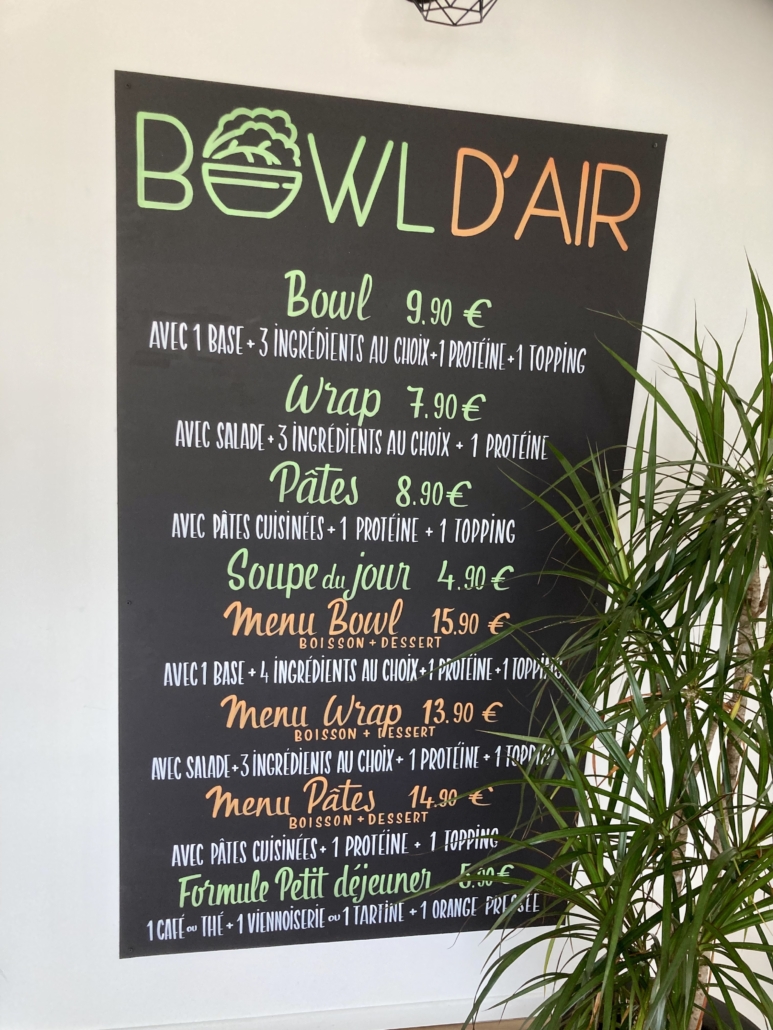 BOWL D'AIR
Bowl 9.90 €
AVEC 1 BASE + 3 INGRÉDIENTS AU CHOIX + 1 PROTÉINE + 1 TOPPING
Wrap 7.90 €
AVEC SALADE + 3 INGRÉDIENTS AU CHOIX + 1 PROTÉINE
Pâtes 8.90 €
AVEC PÂTES CUISINÉES + 1 PROTÉINE + 1 TOPPING
Soupe du jour 4.90 €
Menu Bowl 15.90 €
BOISSON + DESSERT
AVEC 1 BASE + 4 INGRÉDIENTS AU CHOIX + 1 PROTÉINE + 1 TOPPING
Menu Wrap 13.90 €
BOISSON + DESSERT
AVEC SALADE + 3 INGRÉDIENTS AU CHOIX + 1 PROTÉINE + 1 TOPPING
Menu Pâtes 14.90 €
BOISSON + DESSERT
AVEC PÂTES CUISINÉES + 1 PROTÉINE + 1 TOPPING
Formule Petit déjeuner €
1 CAFÉ ou THÉ + 1 VIENNOISERIE ou 1 TARTINE + 1 ORANGE PRESSÉE